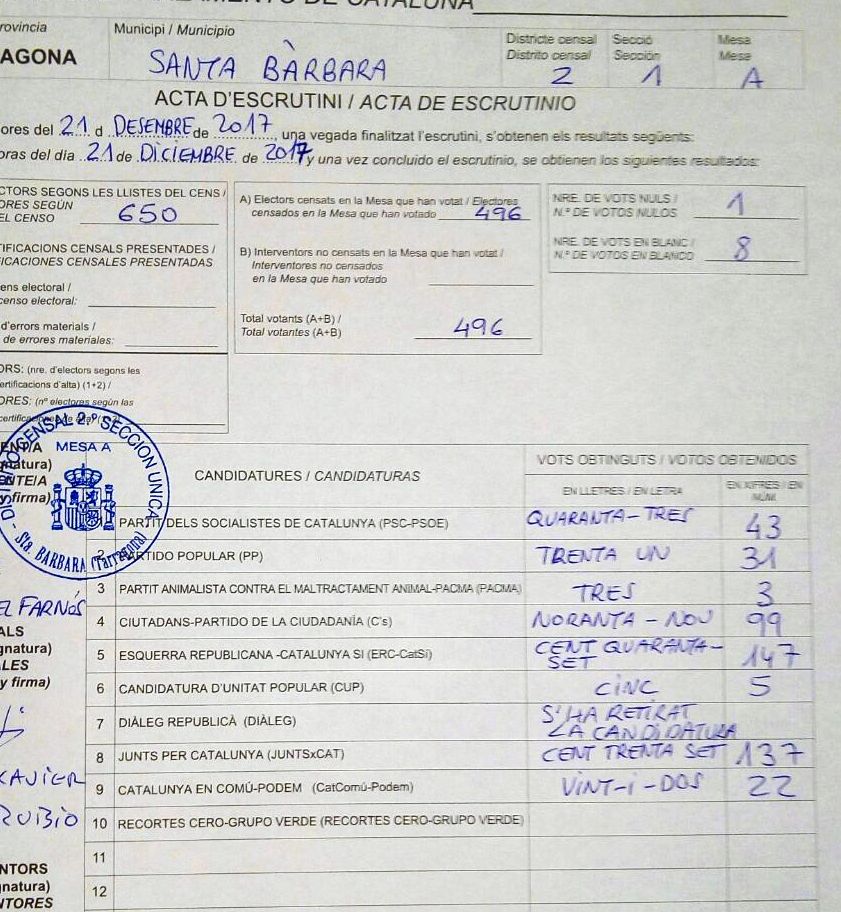 DE CATALUÑA
rovincia
AGONA
Municipi / Municipio
SANTA BÀRBARA
Districte censal
Distrito censal
2
Secció
Sección
1
Mesa
Mesa
A
ACTA D'ESCRUTINI / ACTA DE ESCRUTINIO
ores del 21 d DESEMBRE de 2017, una vegada finalitzat l'escrutini, s'obtenen els resultats següents:
oras del dia 21 de DICIEMBRE de 2017 y una vez concluido el escrutinio, se obtienen los siguientes resultados:
CTORS SEGONS LES LLISTES DEL CENS /
ORES SEGÚN
EL CENSO 650
TIFICACIONS CENSALS PRESENTADES /
FICACIONES CENSALES PRESENTADAS
ens electoral /
censo electoral:
d'errors materials /
de errores materiales:
ORS: (nre. d'electors segons les
ertificacions d'alta) (1+2) /
ORES: (nº electores según las
A) Electors censats en la Mesa que han votat / Electores
censados en la Mesa que han votado 496
B) Interventors no censats en la Mesa que han votat /
Interventores no censados
en la Mesa que han votado
Total votants (A+B) /
Total votantes (A+B) 496
NRE. DE VOTS NULS /
N.º DE VOTOS NULOS 1
NRE. DE VOTS EN BLANC /
N.º DE VOTOS EN BLANCO 8
DISTRITO CENSAL 2.º SECCION UNICA
MESA A
Sta. BARBARA (Tarragona)
natura)
NTE/A
y firma)
CANDIDATURES / CANDIDATURAS
VOTS OBTINGUTS / VOTOS OBTENIDOS
EN LLETRES / EN LETRA
EN XIFRES / EN
NÚM.
1 PARTIT DELS SOCIALISTES DE CATALUNYA (PSC-PSOE) QUARANTA-TRES 43
2 PARTIDO POPULAR (PP) TRENTA UN 31
3 PARTIT ANIMALISTA CONTRA EL MALTRACTAMENT ANIMAL-PACMA (PACMA) TRES 3
4 CIUTADANS-PARTIDO DE LA CIUDADANÍA (C's) NORANTA-NOU 99
5 ESQUERRA REPUBLICANA -CATALUNYA SI (ERC-CatSí) CENT QUARANTA-
SET 147
6 CANDIDATURA D'UNITAT POPULAR (CUP) CINC 5
7 DIÀLEG REPUBLICÀ (DIÀLEG) S'HA RETIRAT
LA CANDIDATURA
8 JUNTS PER CATALUNYA (JUNTSxCAT) CENT TRENTA SET 137
9 CATALUNYA EN COMÚ-PODEM (CatComú-Podem) VINT-I-DOS 22
10 RECORTES CERO-GRUPO VERDE (RECORTES CERO-GRUPO VERDE)
11
12
EL FARNÓS
ALS
gnatura)
LES
y firma)
XAVIER
RUBIO
NTORS
gnatura)
NTORES